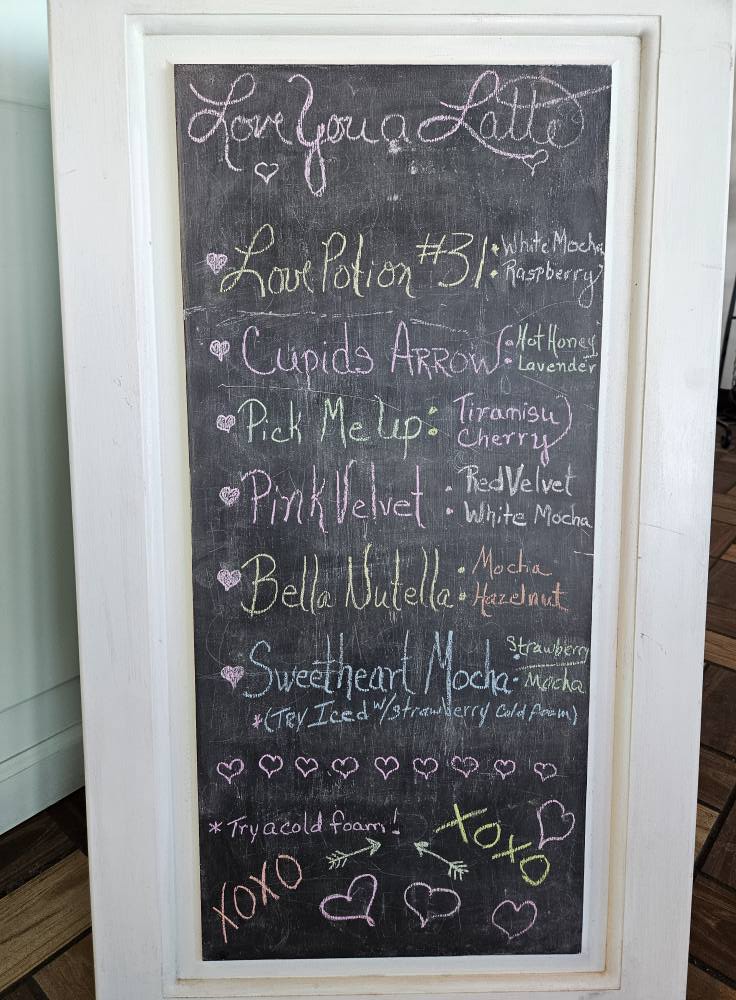 Love You a Latte
Love Potion #31: White Mocha
Raspberry
Cupids Arrow: Hot Honey
Lavender
Pick Me Up: Tiramisu
Cherry
Pink Velvet : Red Velvet
White Mocha
Bella Nutella: Mocha
Hazelnut
Sweetheart Mocha: Strawberry
Mocha
*(Try Iced w/strawberry Cold foam)
*Try a cold foam!
XOXO
XOXO